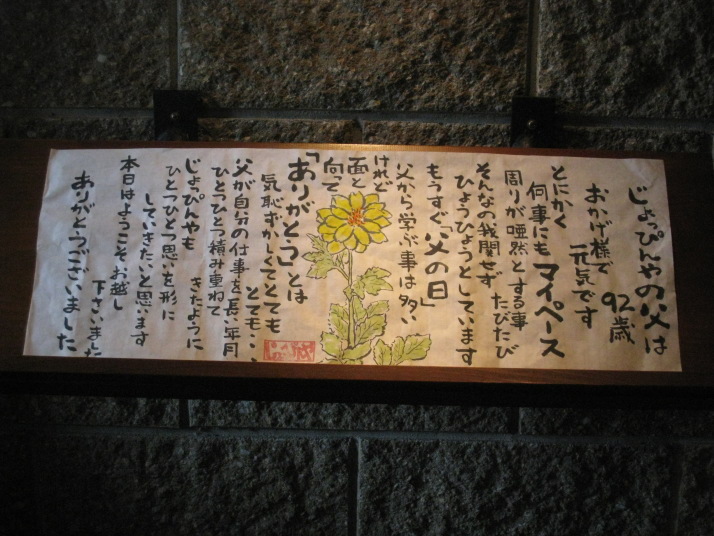 じょっぴんやの父は
92歳
おかげ様で
元気です
とにかく
何事にもマイペース
周りが唖然とする事
たびたび
そんなの我関せず
ひょうひょうとしています
もうすぐ「父の日」
父から学ぶ事は多い
けれど
面と
向って
「ありがとう」とは
気恥ずかしくてとても
とても・・
父が自分の仕事を長い年月
ひとつひとつ積み重ねて
きたように
じょっぴんやも
ひとつひとつ思いを形に
していきたいと思います
本日はようこそお越し
下さいました
ありがとうございました